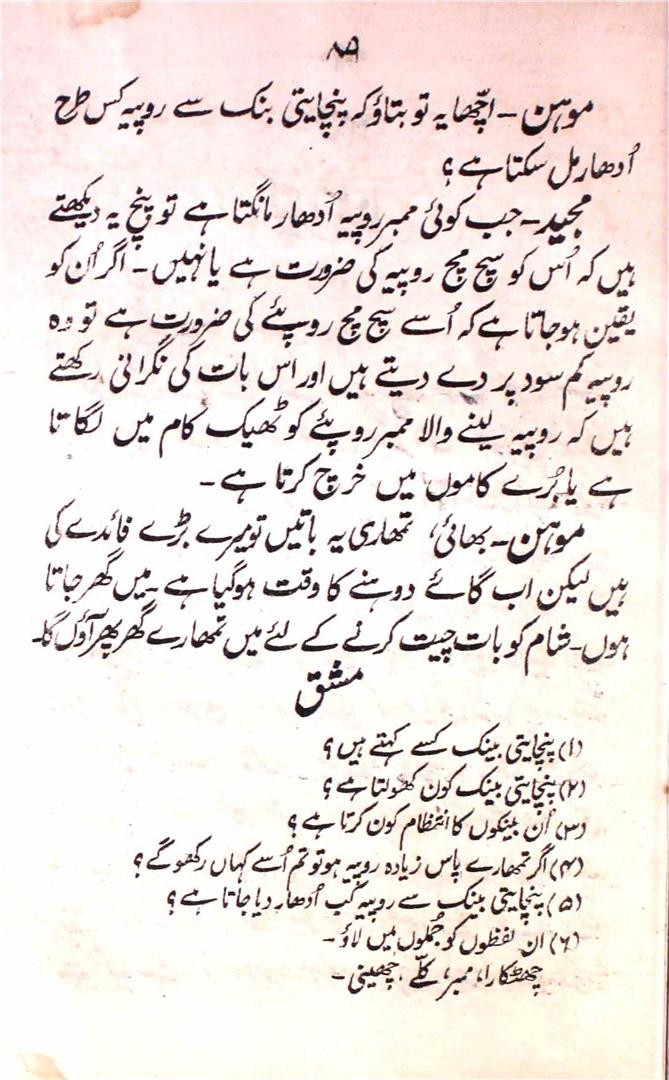 ۸۹
موہن ۔ اچھا یہ تو بتاؤ کہ پنچایتی بنک سے روپیہ کس طرح
اُدھار مل سکتا ہے ؟
مجید ۔ جب کوئی ممبر روپیہ اُدھار مانگتا ہے تو پنچ یہ دیکھتے
ہیں کہ اُس کو سچ مچ روپیہ کی ضرورت ہے یا نہیں ۔ اگر اُن کو
یقین ہو جاتا ہے کہ اُسے سچ مچ روپئے کی ضرورت ہے تو وہ
روپیہ کم سود پر دے دیتے ہیں اور اس بات کی نگرانی رکھتے
ہیں کہ روپیہ لینے والا ممبر روپئے کو ٹھیک کام میں لگاتا
ہے یا بُرے کاموں میں خرچ کرتا ہے ۔
موہن ۔ بھائی، تمھاری یہ باتیں تو میرے بڑے فائدے کی
ہیں لیکن اب گائے دوہنے کا وقت ہو گیا ہے ۔ میں گھر جاتا
ہوں ۔ شام کو بات چیت کرنے کے لئے میں تمھارے گھر پھر آؤں گا۔
مشق
(۱) پنچایتی بینک کسے کہتے ہیں ؟
(۲) پنچایتی بینک کون کھولتا ہے ؟
(۳) اُن بینکوں کا انتظام کون کرتا ہے ؟
(۴) اگر تمھارے پاس زیادہ روپیہ ہو تو تم اُسے کہاں رکھو گے ؟
(۵) پنچایتی بینک سے روپیہ کب اُدھار دیا جاتا ہے ؟
(۶) ان لفظوں کو جُملوں میں لاؤ ۔
چھٹکارا، ممبر، گلّے، چھینی ۔